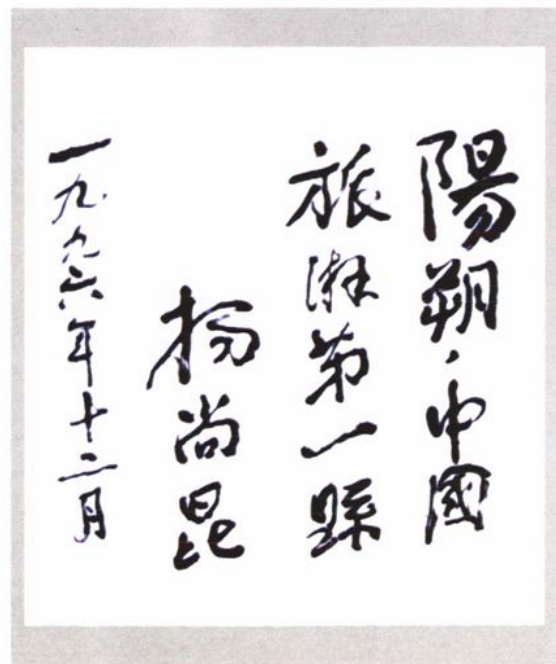 陽朔·中國
旅游第一縣
楊尚昆
一九九六年十二月